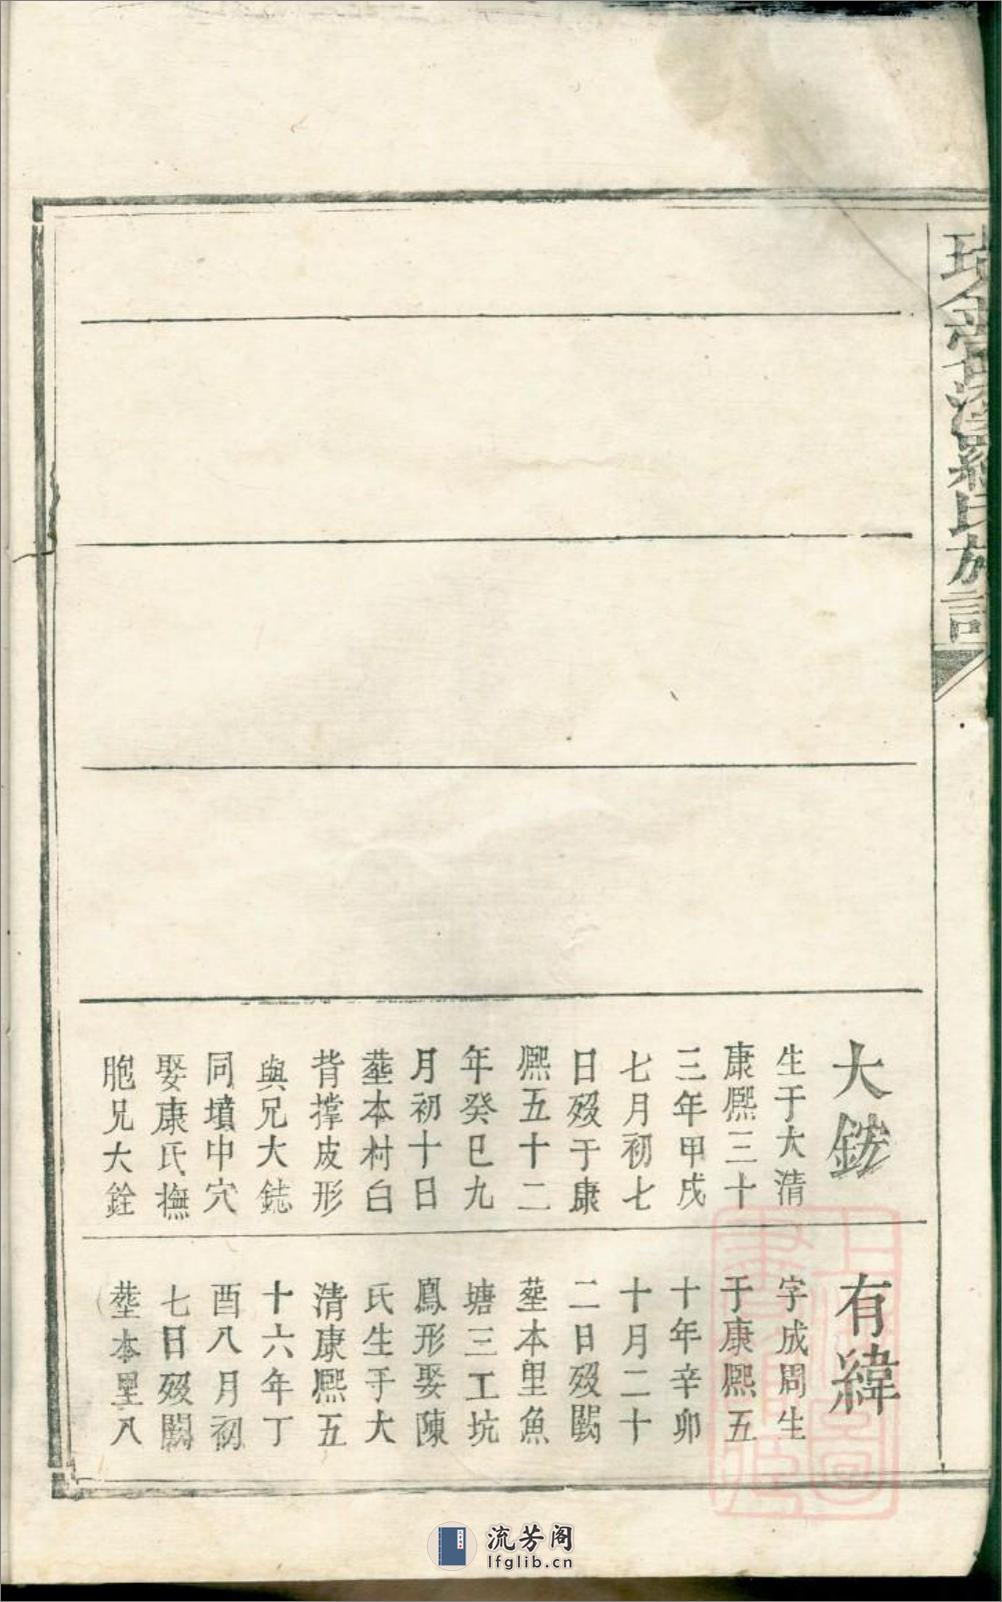 大鈸
生于大清
康熙三十
三年甲戌
七月初七
日歿于康
熙五十二
年癸巳九
月初十日
塟本村白
背撑皮形
與兄大鋕
同墳中穴
娶康氏撫
胞兄大銓
有緯
字成周生
于康熙五
十年辛卯
十月二十
二日歿闕
塟本里魚
塘三工坑
鳳形娶陳
氏生于大
清康熙五
十六年丁
酉八月初
七日歿闕
塟本里八
流芳阁
lfglib.cn